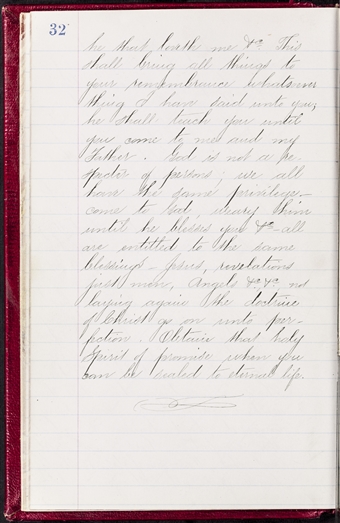 32
he that loveth me &c. This
shall bring all things to
your remembrance whatsoever
thing I have said unto you,
he shall teach you until
you come to me and my
Father. God is not a re-
specter of persons; we all
have the same privileges—
come to God, weary him
until he blesses you &c—all
are entitled to the same
blessings—Jesus, revelations
just men, Angels &c, &c. not
laying again the doctrine
of Christ go on unto per-
fection. Obtain that holy
Spirit of promise when you
can be sealed to eternal life.